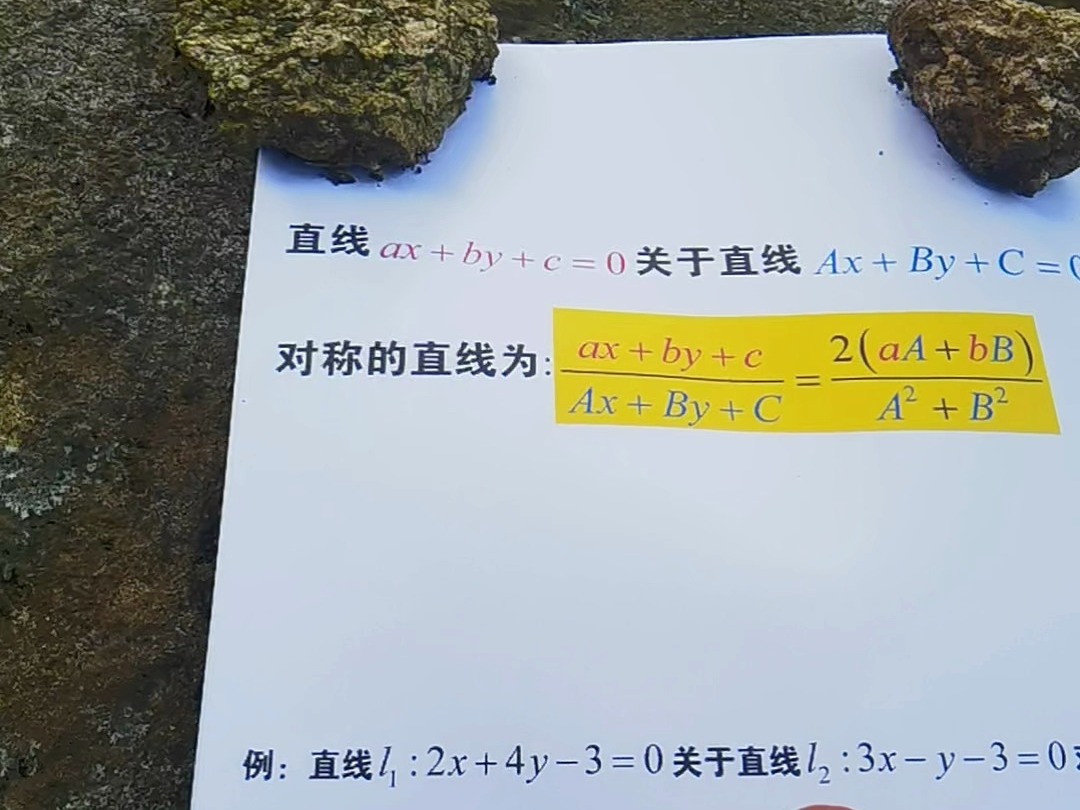 直线 ax + by + c = 0 关于直线 Ax + By + C = 0
对称的直线为: (ax + by + c)/(Ax + By + C) = 2(aA + bB)/(A² + B²)
例: 直线 l₁ : 2x + 4y − 3 = 0 关于直线 l₂ : 3x − y − 3 = 0